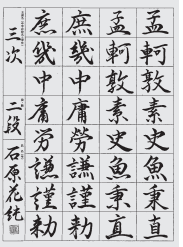 孟軻敦素史魚秉直
孟軻敦素史魚秉直
庶幾中庸勞謙謹勅
庶幾中庸労謙謹勅
三次 二段 石原花純